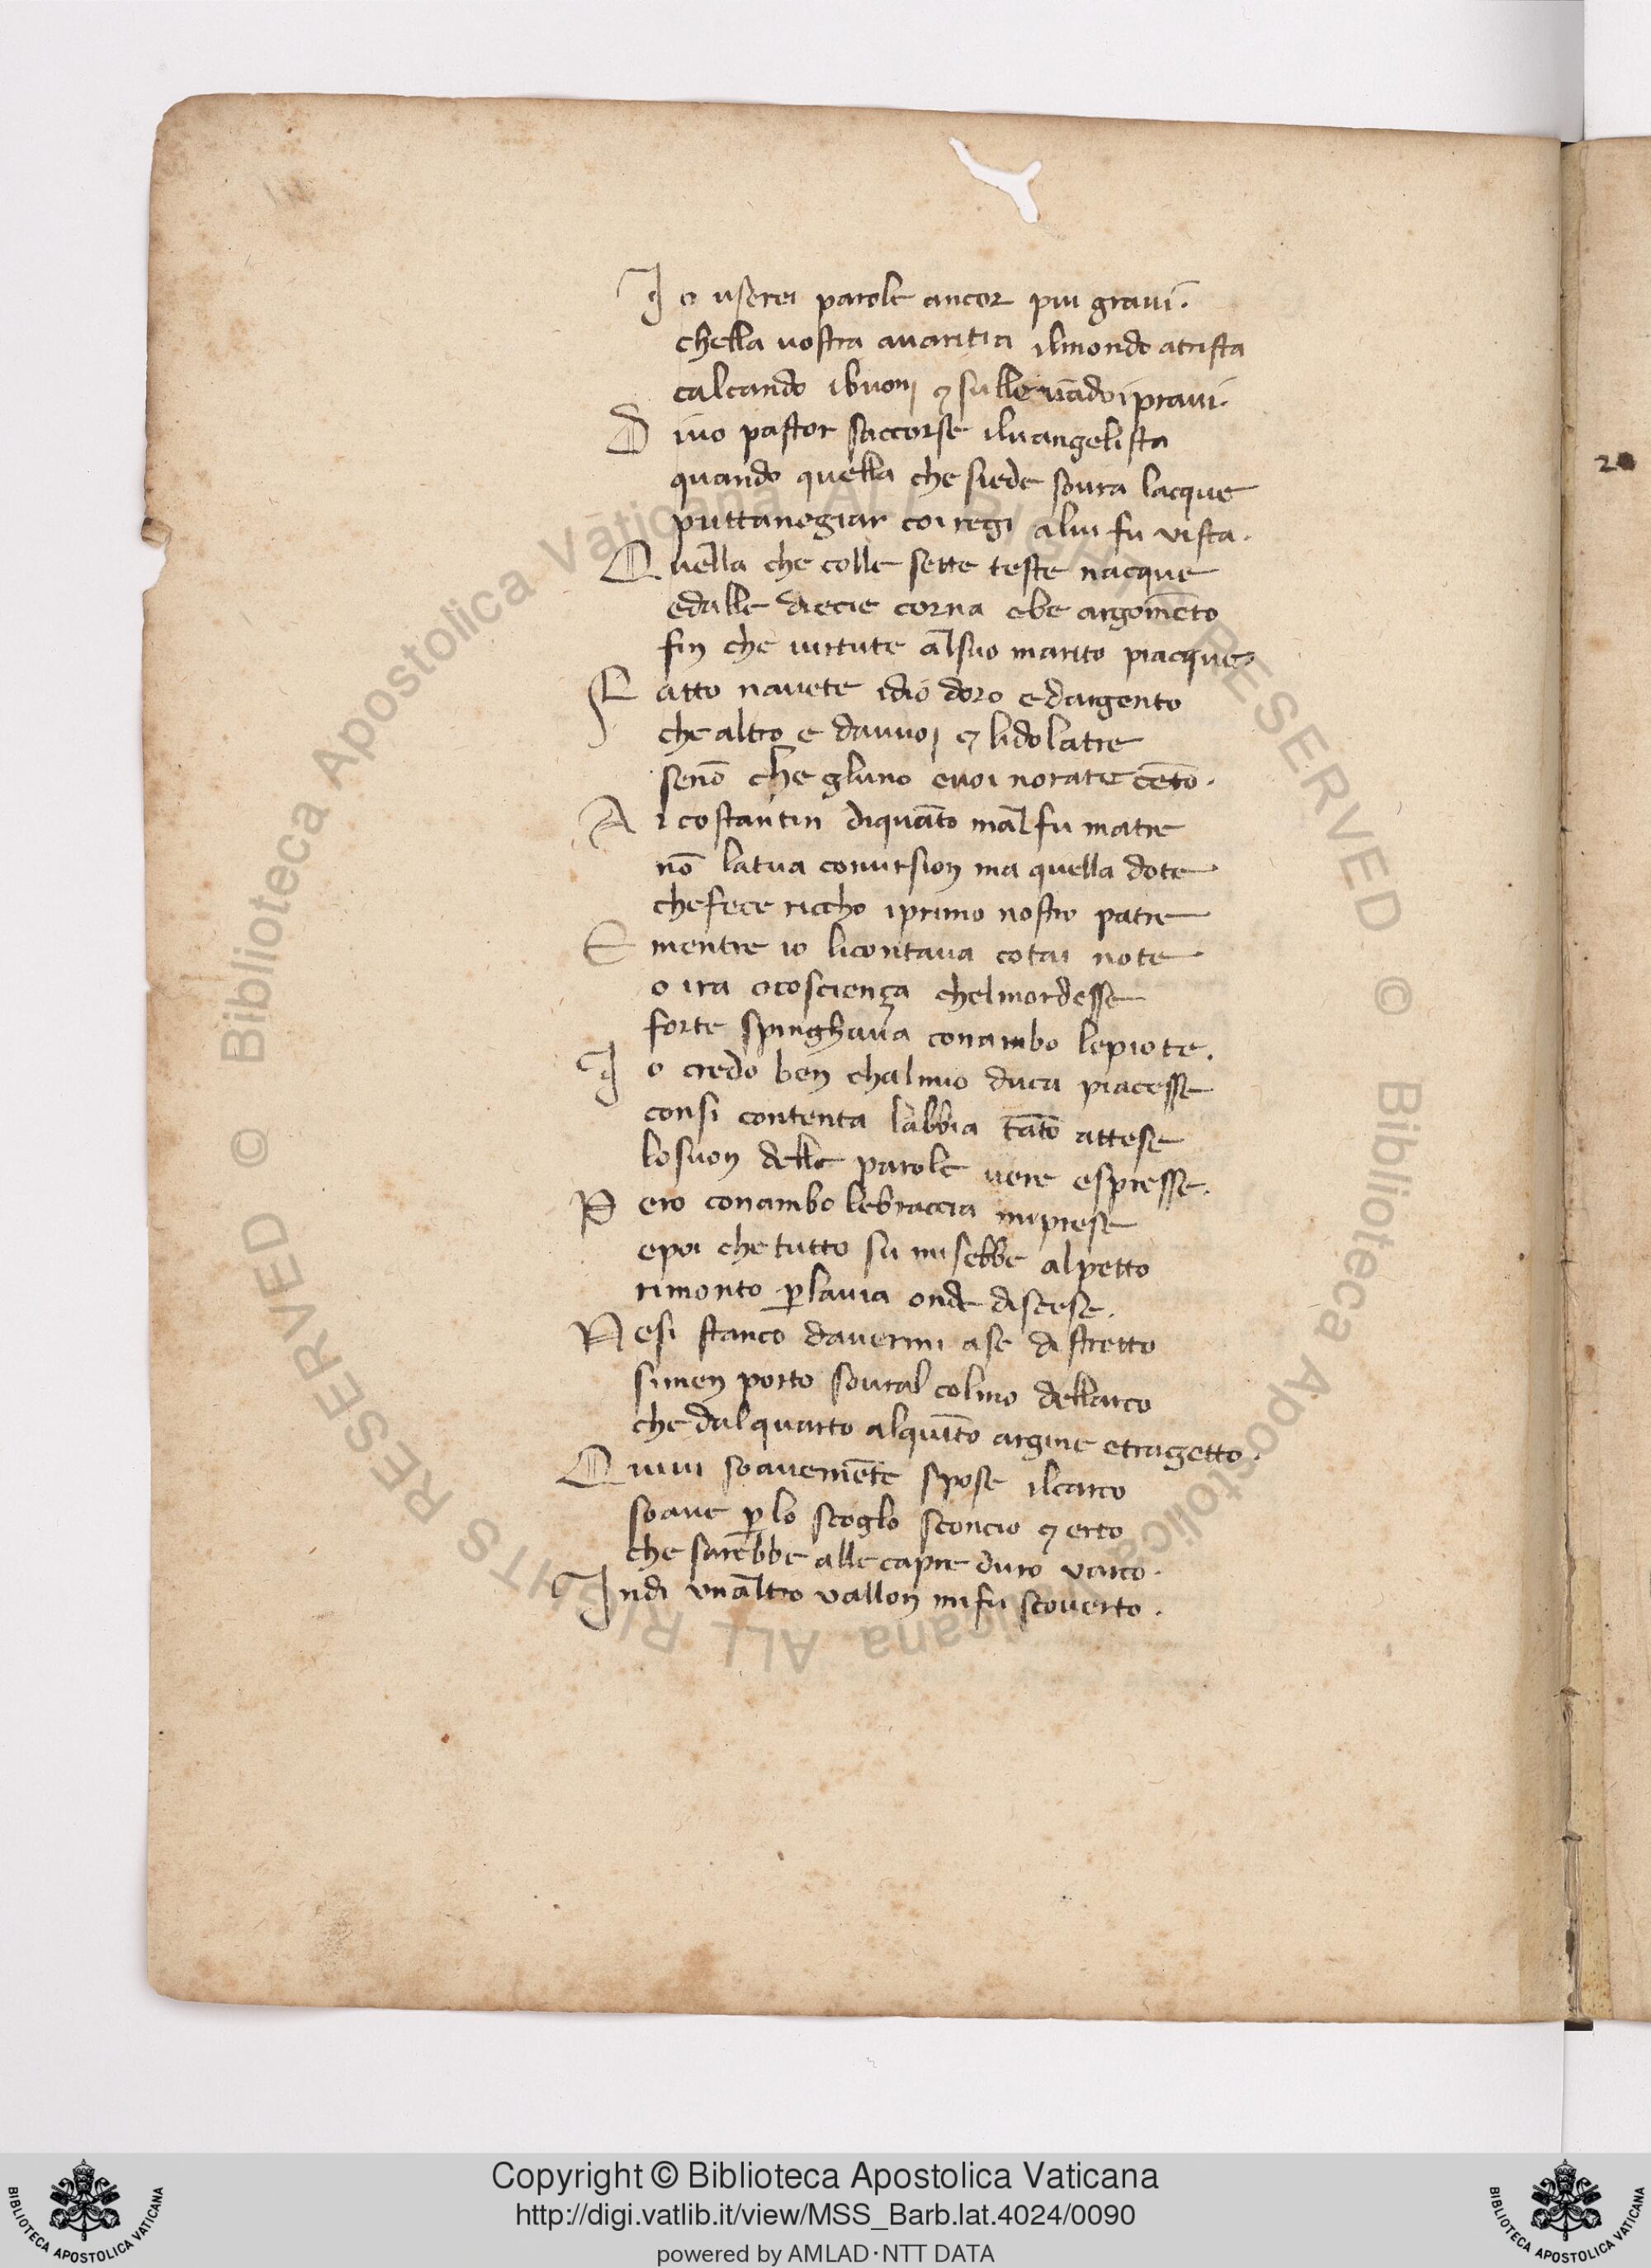 Io userei parole ancor piu graui.
chella uostra auaritia ilmondo atrista
calcando ibuonj ⁊ sulleuādo i praui.
Diuo pastor saccorse iluangelista
quando quella che siede soura lacque
puttanegiar coi regi alui fu vista.
Quella che colle sette teste nacque
edalle diecie corna ebe argomēto
fin che uirtute alsuo marito piacque
Fatto nauete idio doro e dargento
che altro e dauuoj ⁊ lidolatre
senō che gluno euoi norate cēto.
Ai costantin diquāto mal fu matre
nō latua conuersion ma quella dote
chefece riccho iprimo nostro patre
E mentre io licontaua cotai note
o ira o coscienza chelmordesse
forte spinghaua conambo lepiote.
Io credo ben chalmio duca piacesse
consi contenta labbia tāto attese
losuon delle parole uere espresse.
Pero conambo lebraccia miprese
epoi che tutto su mi sebbe alpetto
rimonto ꝑlauia onde discese.
Nesi stanco dauermi ase distretto
simen porto soural colmo dellarco
che dal quarto alquīto argine etragetto.
Quiui soauemēte spose ilcarco
soaue ꝑ lo scoglo sconcio ⁊ erto
che sarebbe alle capre duro varco.
Indi vnaltro vallon mifu scouerto.
20
Copyright © Biblioteca Apostolica Vaticana
http://digi.vatlib.it/view/MSS_Barb.lat.4024/0090
powered by AMLAD·NTT DATA
BIBLIOTECA APOSTOLICA VATICANA
BIBLIOTECA APOSTOLICA VATICANA
© Biblioteca Apostolica Vaticana ALL RIGHTS RESERVED © Biblioteca Apostolica Vaticana ALL RIGHTS RESERVED